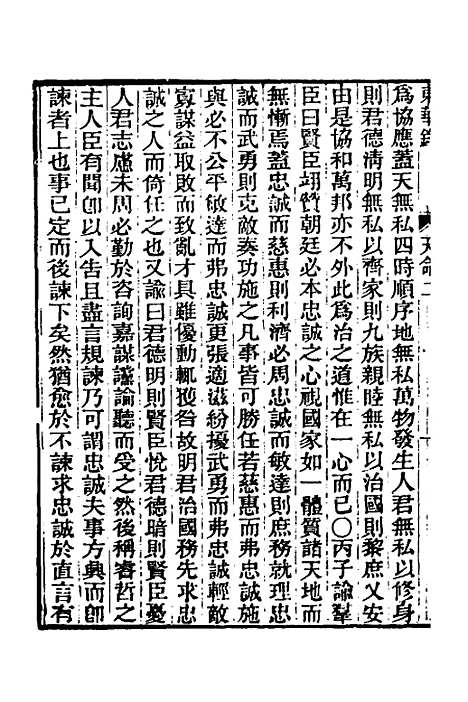 東華錄 天命二
爲協應蓋天無私四時順序地無私萬物發生人君無私以修身
則君德淸明無私以齊家則九族親睦無私以治國則黎庶乂安
由是協和萬邦亦不外此爲治之道惟在一心而已〇丙子諭羣
臣曰賢臣翊贊朝廷必本忠誠之心視國家如一體質諸天地而
無慚焉蓋忠誠而慈惠則利濟必周忠誠而敏達則庶務就理忠
誠而武勇則克敵奏功施之凡事皆可勝任若慈惠而弗忠誠施
與必不公平敏達而弗忠誠更張適滋紛擾武勇而弗忠誠輕敵
寡謀益取敗而致亂才具雖優動輒獲咎故明君治國務先求忠
誠之人而倚任之也又諭曰君德明則賢臣悅君德暗則賢臣憂
人君志慮未周必勤於咨詢嘉謀讜論聽而受之然後稱睿哲之
主人臣有聞卽以入告且盡言規諫乃可謂忠誠夫事方興而卽
諫者上也事已定而後諫下矣然猶愈於不諫求忠誠於直言有